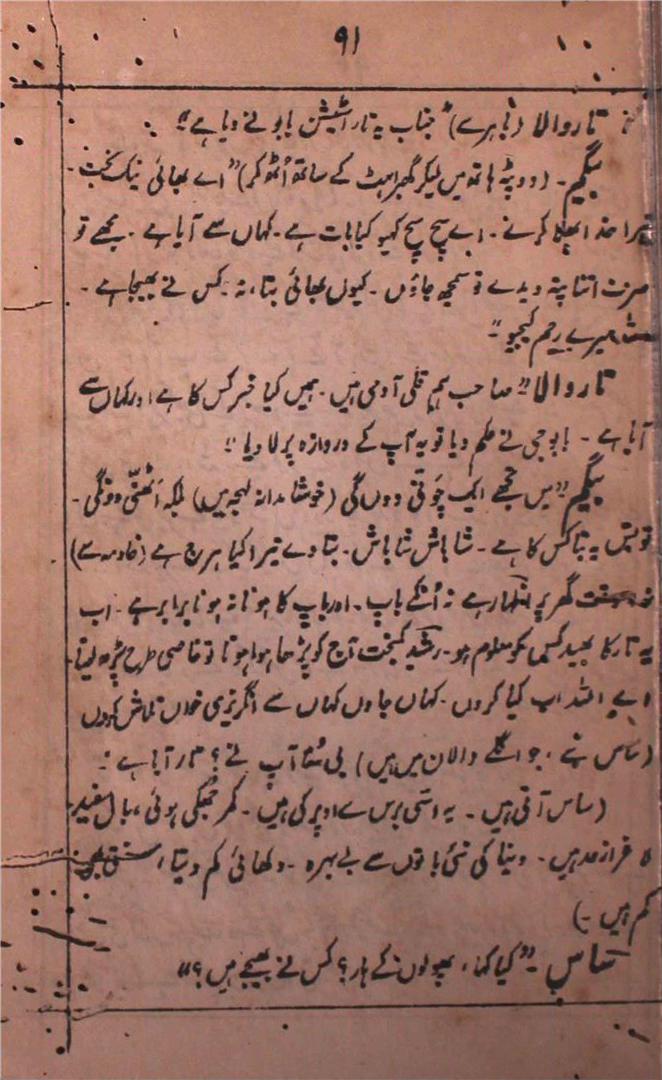 ۹۱
تار والا (باہرسے) "جناب یہ تار اسٹیشن بابو نے دیا ہے"
بیگم۔ (دوپٹہ ہاتھ میں لیکر گھبراہٹ کے ساتھ اُٹھ کر) "اے بھائی نیک بخت۔
تیرا خدا بھلا کرے۔ اے سچ سچ کہیو کیا بات ہے۔ کہاں سے آیا ہے۔ مجھے تو
صرف اتنا پتہ دیدے تو سمجھ جاؤں۔ کیوں بھائی بتا، نہ۔ کس نے بھیجا ہے۔
میرے رحم کیجیو"۔
تار والا "صاحب ہم قلی آدمی ہیں۔ ہمیں کیا خبر کس کا ہے اور کہاں سے
آیا ہے۔ بابو جی نے حکم دیا تو یہ آپ کے دروازہ پر لا دیا"
بیگم "میں تجھے ایک چَوَنّی دوں گی (خوشامدانہ لہجہ میں) بلکہ اٹھنّی دونگی۔
تو بس یہ بتا کس کا ہے۔ شاباش شاباش۔ بتا دے تیرا کیا ہرج ہے (خادمہ سے)
گھر پر ہے نہ اُنکے باپ۔ اور باپ کا ہونا نہ ہونا برابر ہے۔ اب
یہ تار کا بھید کسی کو معلوم ہو۔ رشید کمبخت آج کو پڑھا ہوا ہوتا تو خاصی طرح پڑھ لیتا۔
اے اللہ اب کیا کروں۔ کہاں جاوں کہاں سے انگریزی خواں تلاش کروں
(ساس نے، جو اگلے دالان میں ہیں) بی سُنا آپ نے؟ تار آیا ہے"
(ساس آتی ہیں۔ یہ اسّی برس سے اوپر کی ہیں۔ کمر جھکی ہوئی، بال سفید
ہیں۔ دنیا کی نئی باتوں سے بے بہرہ۔ دکھائی کم دیتا،
کم ہیں۔)
ساس۔ "کیا کہا، پھولوں کے ہار؟ کس نے بھیجے ہیں؟"